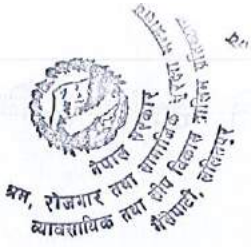 नेपाल सरकार
श्रम, रोजगार तथा सामाजिक
व्यावसायिक तथा सीप विकास तालिम
भैंसेपाटी, ललितपुर